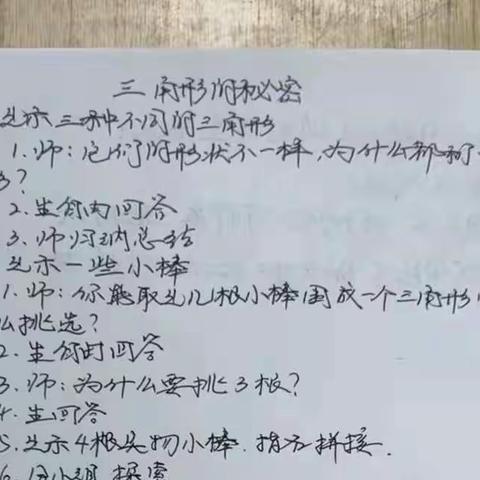 三角形的秘密
出示三种不同的三角形
1.师:它们的形状不一样,为什么都
?
2.生 回答
3.师归纳总结
出示一些小棒
1.师:你能取出几根小棒围成一个三角形
么挑选?
2.生 回答
3.师:为什么要挑3根?
4.生回答
5.出示4根实物小棒.指 拼接.
6.分小组探索